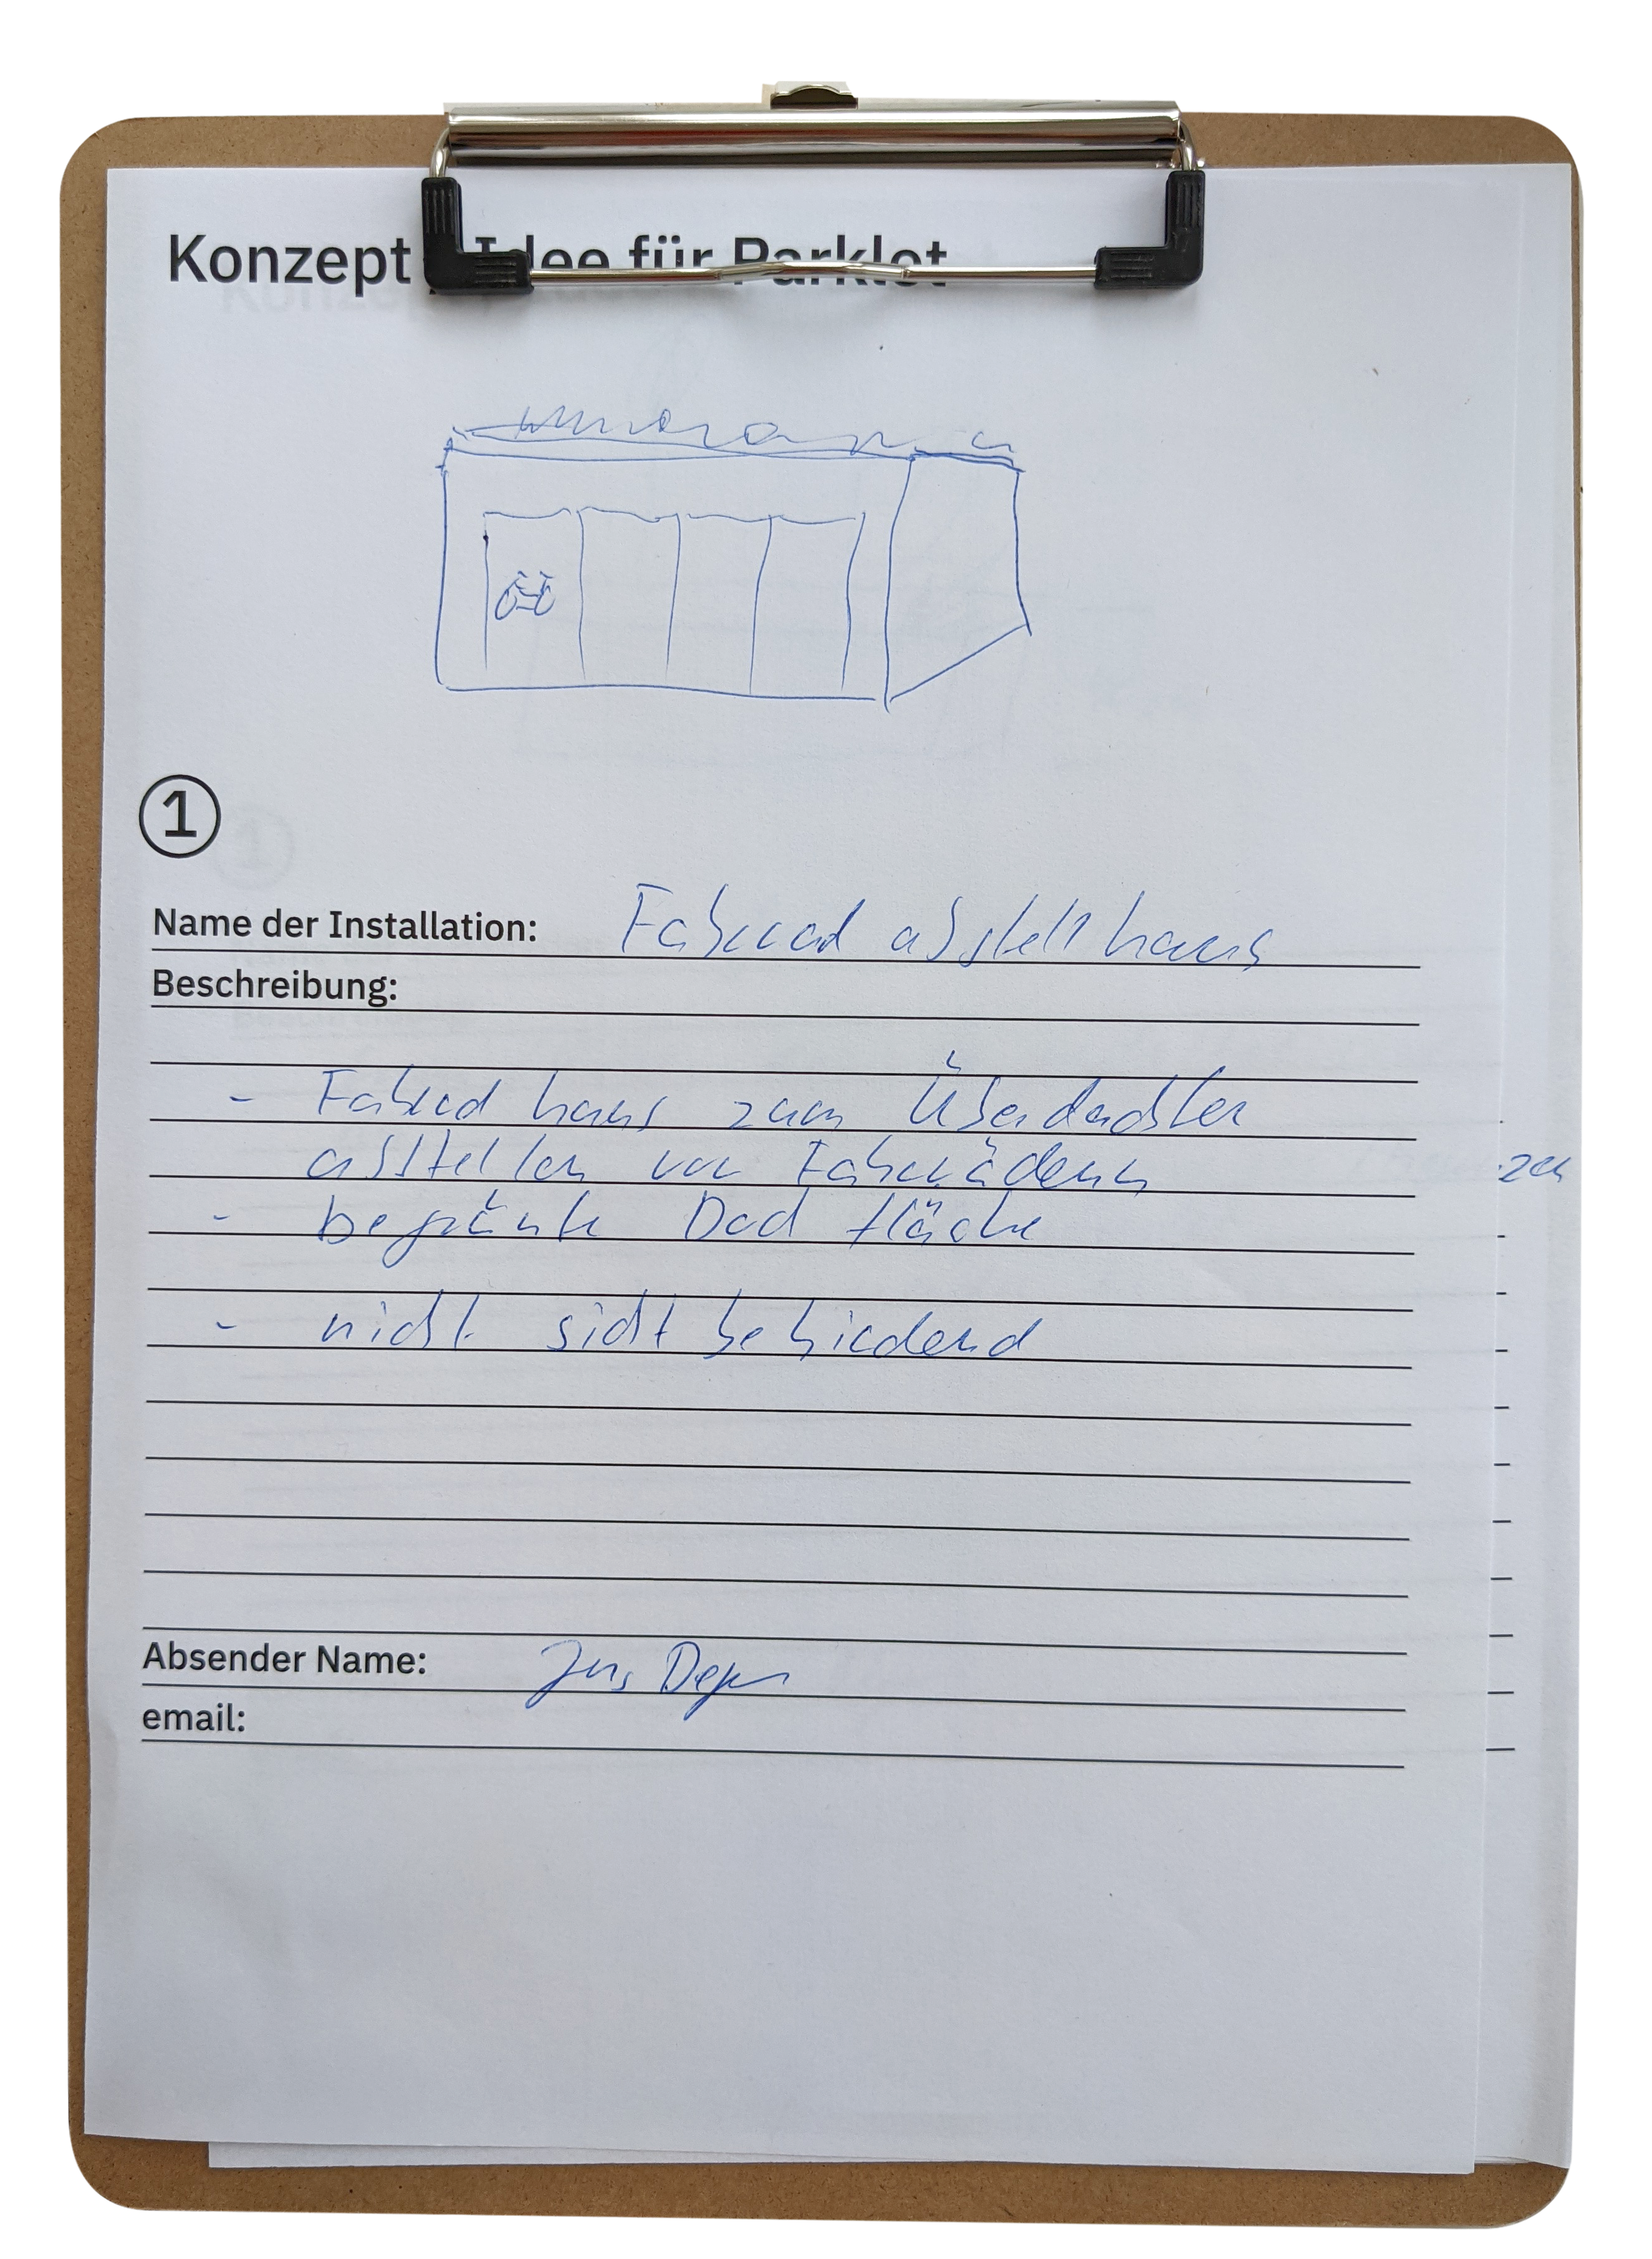 Konzept / Idee für Parklet
1
Name der Installation: Fahrrad abstellhaus
Beschreibung:
- Fahrrad haus zum Überdachten
abstellen von Fahrrädern
- begrünte Dach fläche
- nicht sicht behindernd
zen
Absender Name: Jens
email: